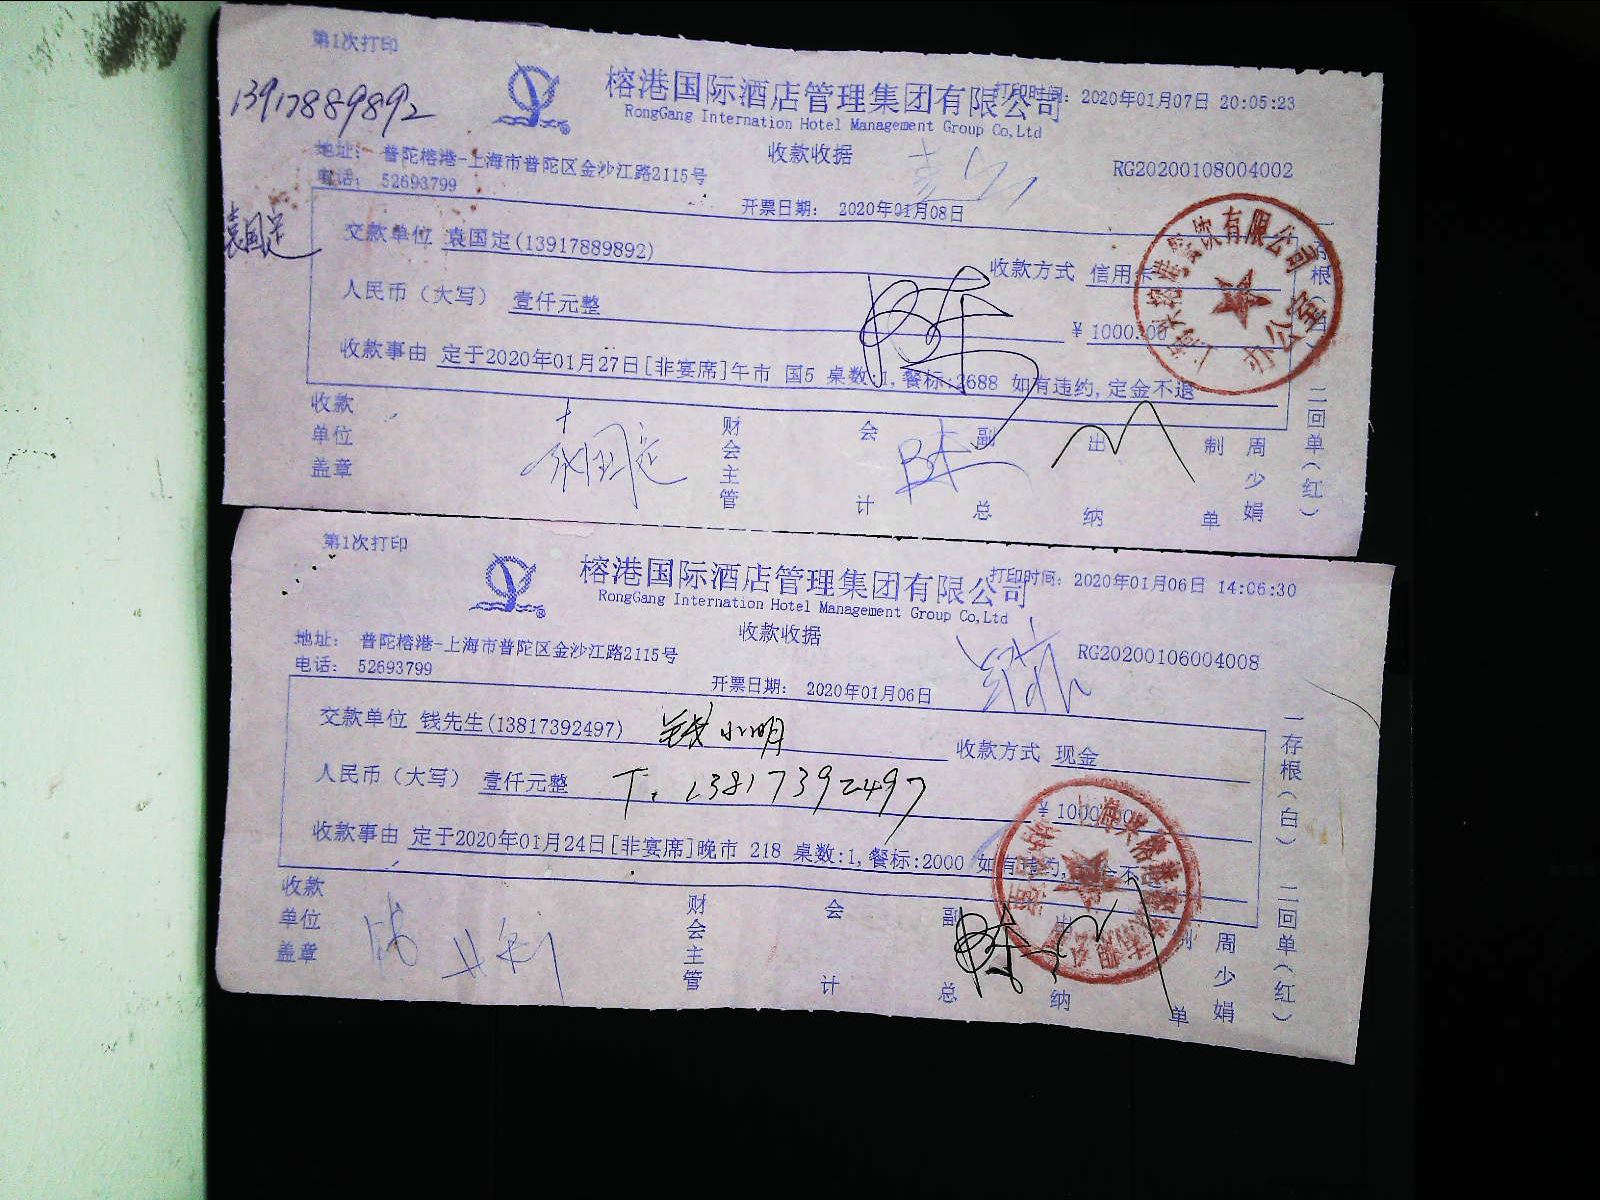 第1次打印
13917889892
榕港国际酒店管理集团有限公司
打印时间: 2020年01月07日 20:05:23
RongGang Internation Hotel Management Group Co,Ltd
地址: 普陀榕港-上海市普陀区金沙江路2115号
收款收据
RG20200108004002
电话: 52693799
开票日期: 2020年01月08日
袁国定
交款单位 袁国定(13917889892)
收款方式 信用卡
人民币(大写) 壹仟元整
¥ 1000.00
收款事由 定于2020年01月27日[非宴席]午市 国5 桌数:1,餐标:2688 如有违约,定金不退
收款单位盖章
袁国定
财会主管
会计
副总
出纳
制单
周少娟
一存根(白) 二回单(红)
有限公司
办公室
第1次打印
榕港国际酒店管理集团有限公司
打印时间: 2020年01月06日 14:06:30
RongGang Internation Hotel Management Group Co,Ltd
收款收据
地址: 普陀榕港-上海市普陀区金沙江路2115号
RG20200106004008
电话: 52693799
开票日期: 2020年01月06日
交款单位 钱先生(13817392497) 钱小明
收款方式 现金
人民币(大写) 壹仟元整 T: 13817392497
¥ 1000.00
收款事由 定于2020年01月24日[非宴席]晚市 218 桌数:1,餐标:2000 如有违约,
收款单位盖章
财会主管
会计
副总
出纳
制单
周少娟
一存根(白) 二回单(红)